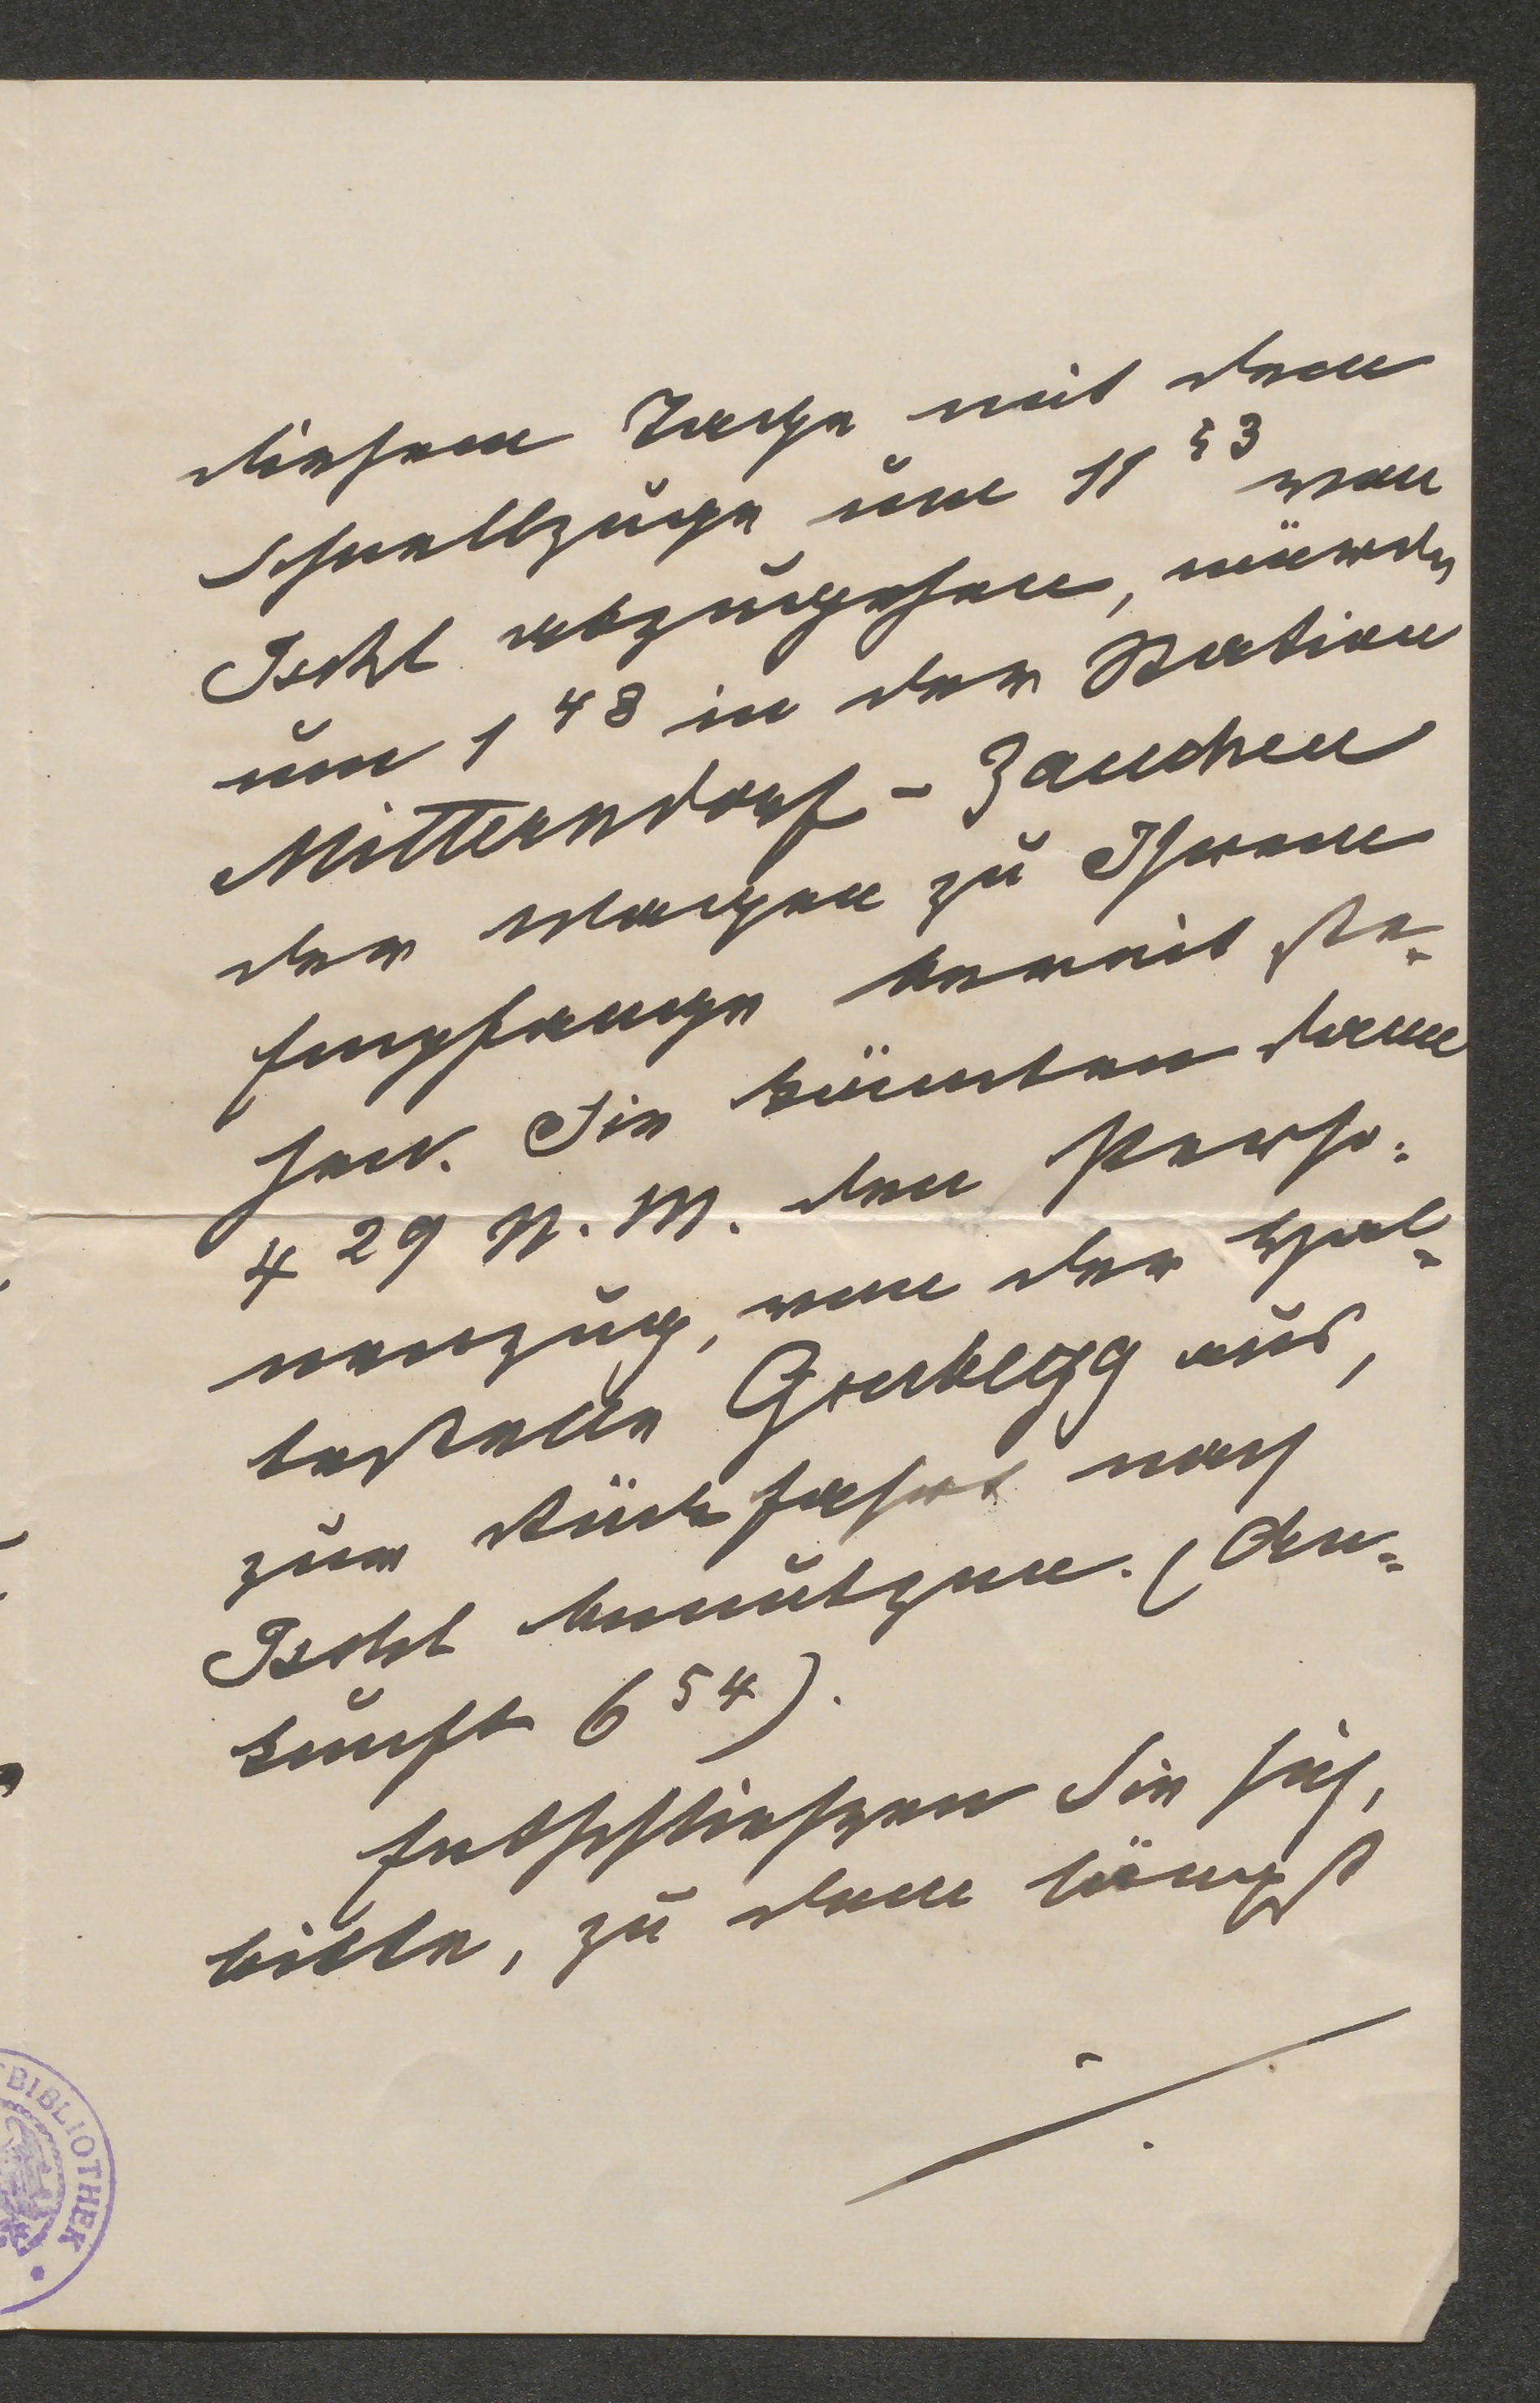 diesem Tage mit dem
Schnellzuge um 11 53 von
Ischl abzugehen, würde
um 1 48 in der Station
Mitterndorf-Zauchen
der Wagen zu Ihrem
Empfange bereit ste-
hen. Sie könnten dann
4 29 N. M. den Perso=
nenzug, von der Hal=
testelle Grubegg aus,
zur Rückfahrt nach
Ischl benützen. (An=
kunft 6 54).
Entschließen Sie sich,
bitte, zu dem längst
./.
BIBLIOTHEK